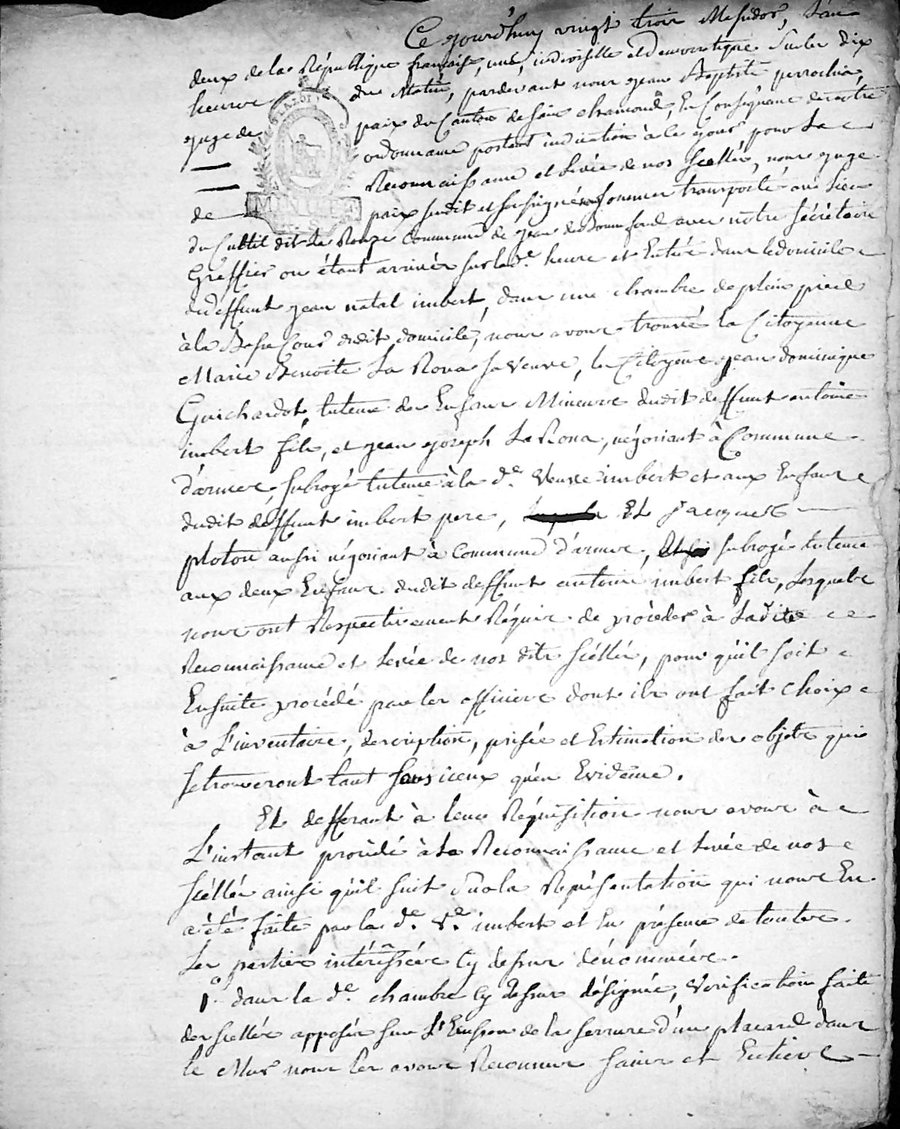 Ce jourd'huy vingt trois Messidor, L'an
deux de la République française, une, indivisible et démocratique Sur les dix
heures du Matin, pardevant nous jean Baptiste
juge de paix du Canton de Sain chamond, En Conséquence de notre
ordonnance portant indication à ce jour, pour La
Reconnaissance et Levée de nos scellés, nous juge
de paix susdit et soussigné nous sommes transporté au Lieu
du Cultil dit La Ronze Commune de jean de Bonnefond avec notre Sécrétaire
Greffier ou étant arrivés sur lad.e heure et Entrés dans le domicile
du deffunt jean natal imbert, dans une chambre de plein pied
à la Basse Cour dudit domicile, nous avons trouvé la Citoyenne
Marie Benoite La Rona sa Veuve, le Citoyens jean dominique
Guichardot, tuteur des Enfans Mineurs dudit deffunt antoine
imbert fils, et jean joseph La Rona, négotiant à Commune
d'armes, subrogé tuteur à la d.e Veuve imbert et aux Enfans
dudit deffunt imbert pere, Et Jacques
ploton aussi négotiant à Commune d'armes, subrogé tuteur
aux deux Enfans dudit deffunt antoine imbert fils, Lesquels
nous ont Respectivement Réquis de procéder à Ladite
Reconnaissance et Levée de nos dits scéllés, pour qu'il soit
Ensuite procédé par les officiers dont ils ont fait choix
à L'inventaire, description, prisée et Estimation des objets qui
se trouveront tant sous iceux qu'en Evidence.
Et defferant à leur Réquisition nous avons à
L'instant procédé à La Reconnaissance et Levée de nos
scéllés ainsi qu'il suit Sur la Représentation qui nous En
a été faite par la d.e V.e imbert et En présence de toutes
Les parties intéréssées Cy dessus dénommées.
1.o dans la d.e chambre Cy dessus désignée, Vérification faite
des scellés apposés sur L'Entrée de la serrure d'un placard dans
le Mur nous les avons Reconnus sains et Entiers